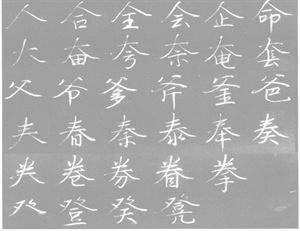 人 合 全 会 企 命
大 奋 夸 奈 奄 套
父 爷 爹 斧 釜 爸
春 秦 泰 奉 奏
卷 券 眷 拳
癶 登 癸 凳